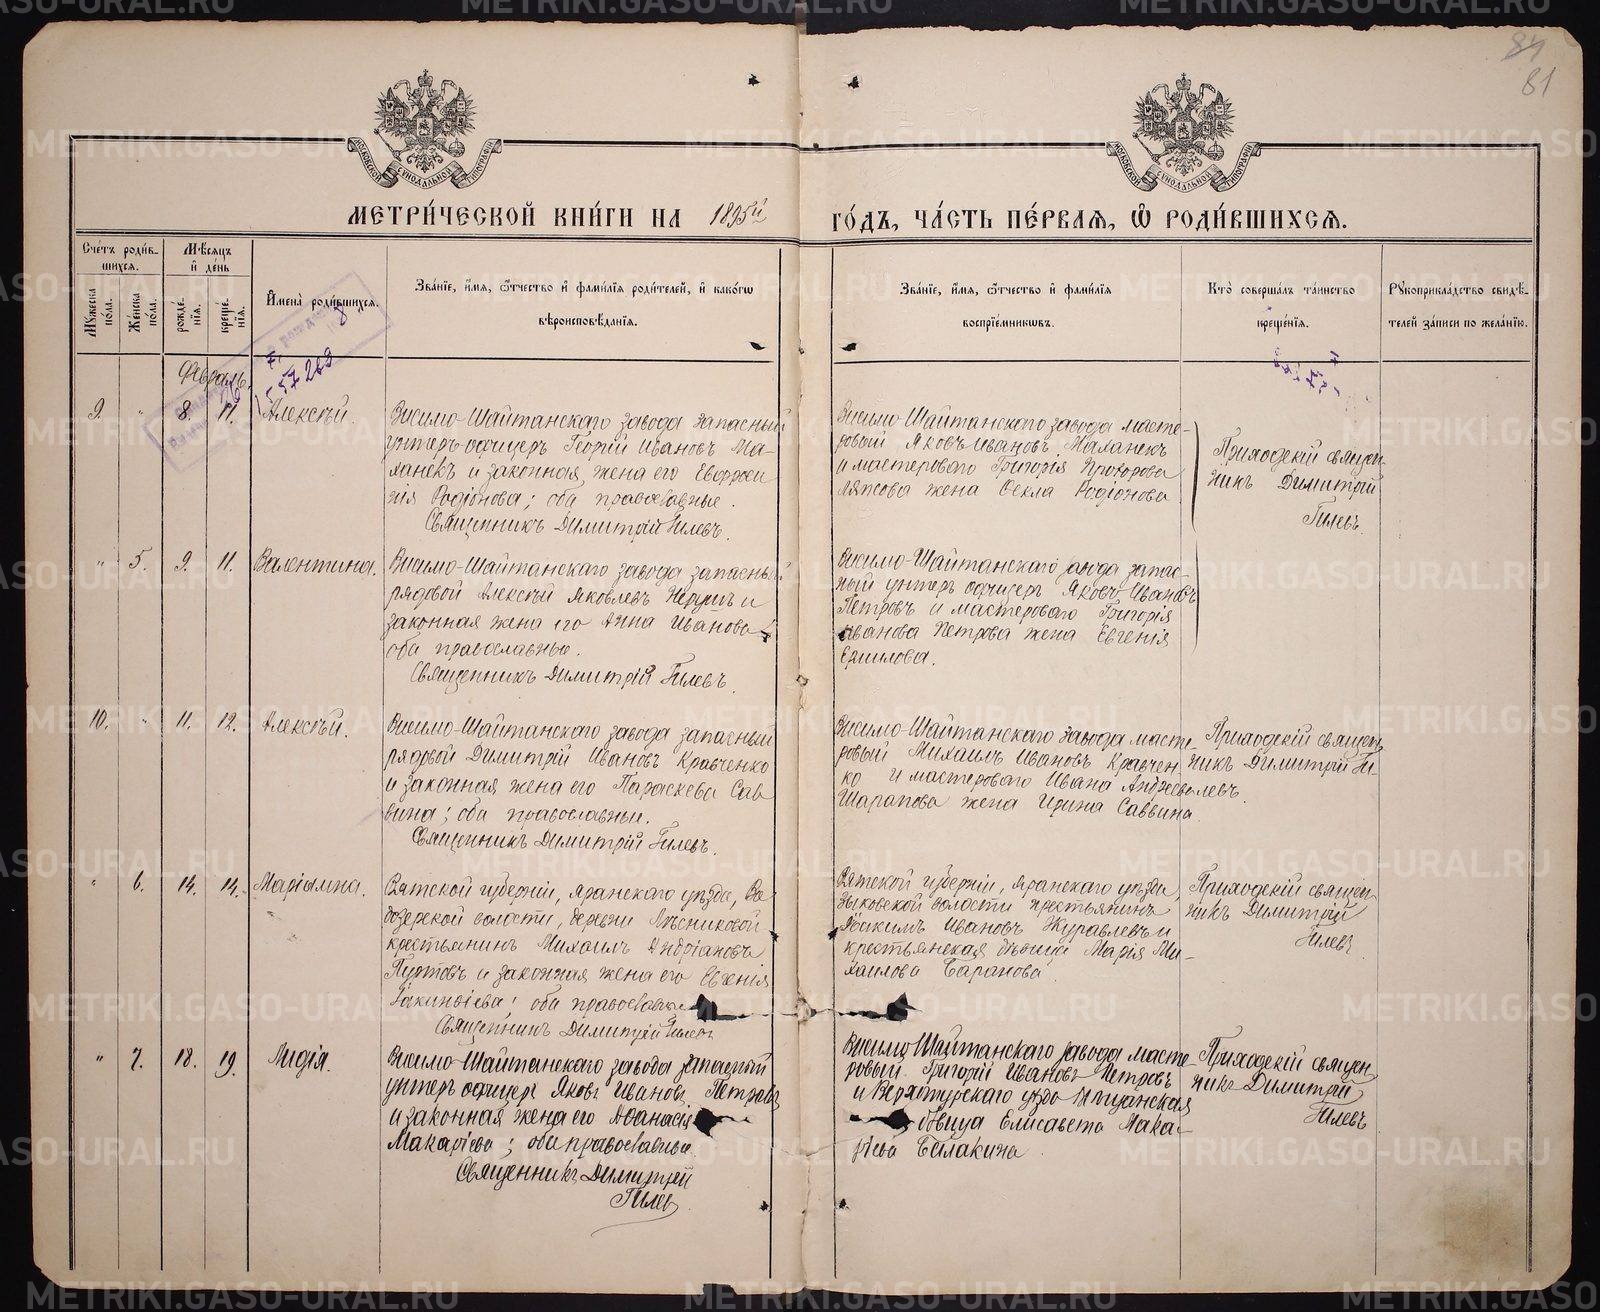 84
81
МЕТРИ́ЧЕСКОЙ КНИ́ГИ НА 1895й ГО́ДЪ, ЧА́СТЬ ПЕ́РВАЯ, Ѡ РОДИ́ВШИХСЯ.
Сче́тъ роди́в-
шихся.
Мѣ́сяцъ
и҆ де́нь
Мꙋ́жеска
по́ла.
Же́нска
по́ла.
рожде́-
нїя.
креще́-
нїя.
И҆мена̀ роди́вшихся.
Зва́нїе, и҆́мя, ѻ҆́тчество и҆ фами́лїя роди́телей, и҆ како́гѡ
вѣроисповѣ́данїя.
Зва́нїе, и҆́мя, ѻ҆́тчество и҆ фами́лїя
воспрїе́мниковъ.
Кто̀ соверша́лъ та́инство
креще́нїя.
Рꙋкоприкла́дство свидѣ́-
телей за́писи по жела́нїю.
Февраль.
9. " 8. 11. Алексѣй.
Висимо-Шайтанскаго завода запасный
унтеръ офицеръ Георгій Ивановъ Ма-
ханекъ и законная жена его Евфросі
нія Родіонова; оба православные.
Священникъ Димитрій Гилевъ.
Висимо-Шайтанскаго завода масте-
ровой Яковъ Ивановъ Маханекъ
и мастероваго Григорія Прохорова
жена Ѳекла Родіонова
Приходскій священ-
никъ Димитрій
Гилевъ
" 5. 9. 11. Валентина.
Висимо-Шайтанскаго завода запасный
рядовой Алексѣй Яковлевъ и
законная жена его Анна Иванова
оба православные.
Священникъ Димитрій Гилевъ.
Висимо-Шайтанскаго завода запас-
ный унтеръ офицеръ Яковъ Ивановъ
Петровъ и мастероваго Григорія
Иванова Петрова жена Евгенія
Ермилова.
10. " 11. 12. Алексѣй.
Висимо-Шайтанскаго завода запасный
рядовой Димитрій Ивановъ Кравченко
и законная жена его Параскева Сав
вина; оба православные.
Священникъ Димитрій Гилевъ.
Висимо-Шайтанскаго завода масте-
ровый Михаилъ Ивановъ Кравчен
ко и мастероваго Ивана Андреева
Шарапова жена Ирина Саввина
Приходскій священ
никъ Димитрій Ги-
левъ.
" 6. 14. 14. Маріамна.
Вятской губерніи, Яранскаго уѣзда,
волости, деревни Лѣсниковой
крестьянинъ Михаилъ Андріановъ
и законная жена его Евгенія
оба православные
Священникъ Димитрій Гилевъ
Вятской губерніи, Яранскаго уѣзда,
волости крестьянинъ
Іоакимъ Ивановъ Журавлевъ и
крестьянская дѣвица Марія Ми-
хаилова Баранова
Приходскій священ-
никъ Димитрій
Гилевъ
" 7. 18. 19. Лидія.
Висимо-Шайтанскаго завода запасный
унтеръ офицеръ Яковъ Ивановъ Петровъ
и законная жена его Аѳанасія
Макаріева; оба православные.
Священникъ Димитрій
Гилевъ
Висимо Шайтанскаго завода масте
ровый Григорій Ивановъ Петровъ
и Верхотурскаго уѣзда
дѣвица Елисавета Мака-
ріева Балакина
Приходскій священ
никъ Димитрій
Гилевъ